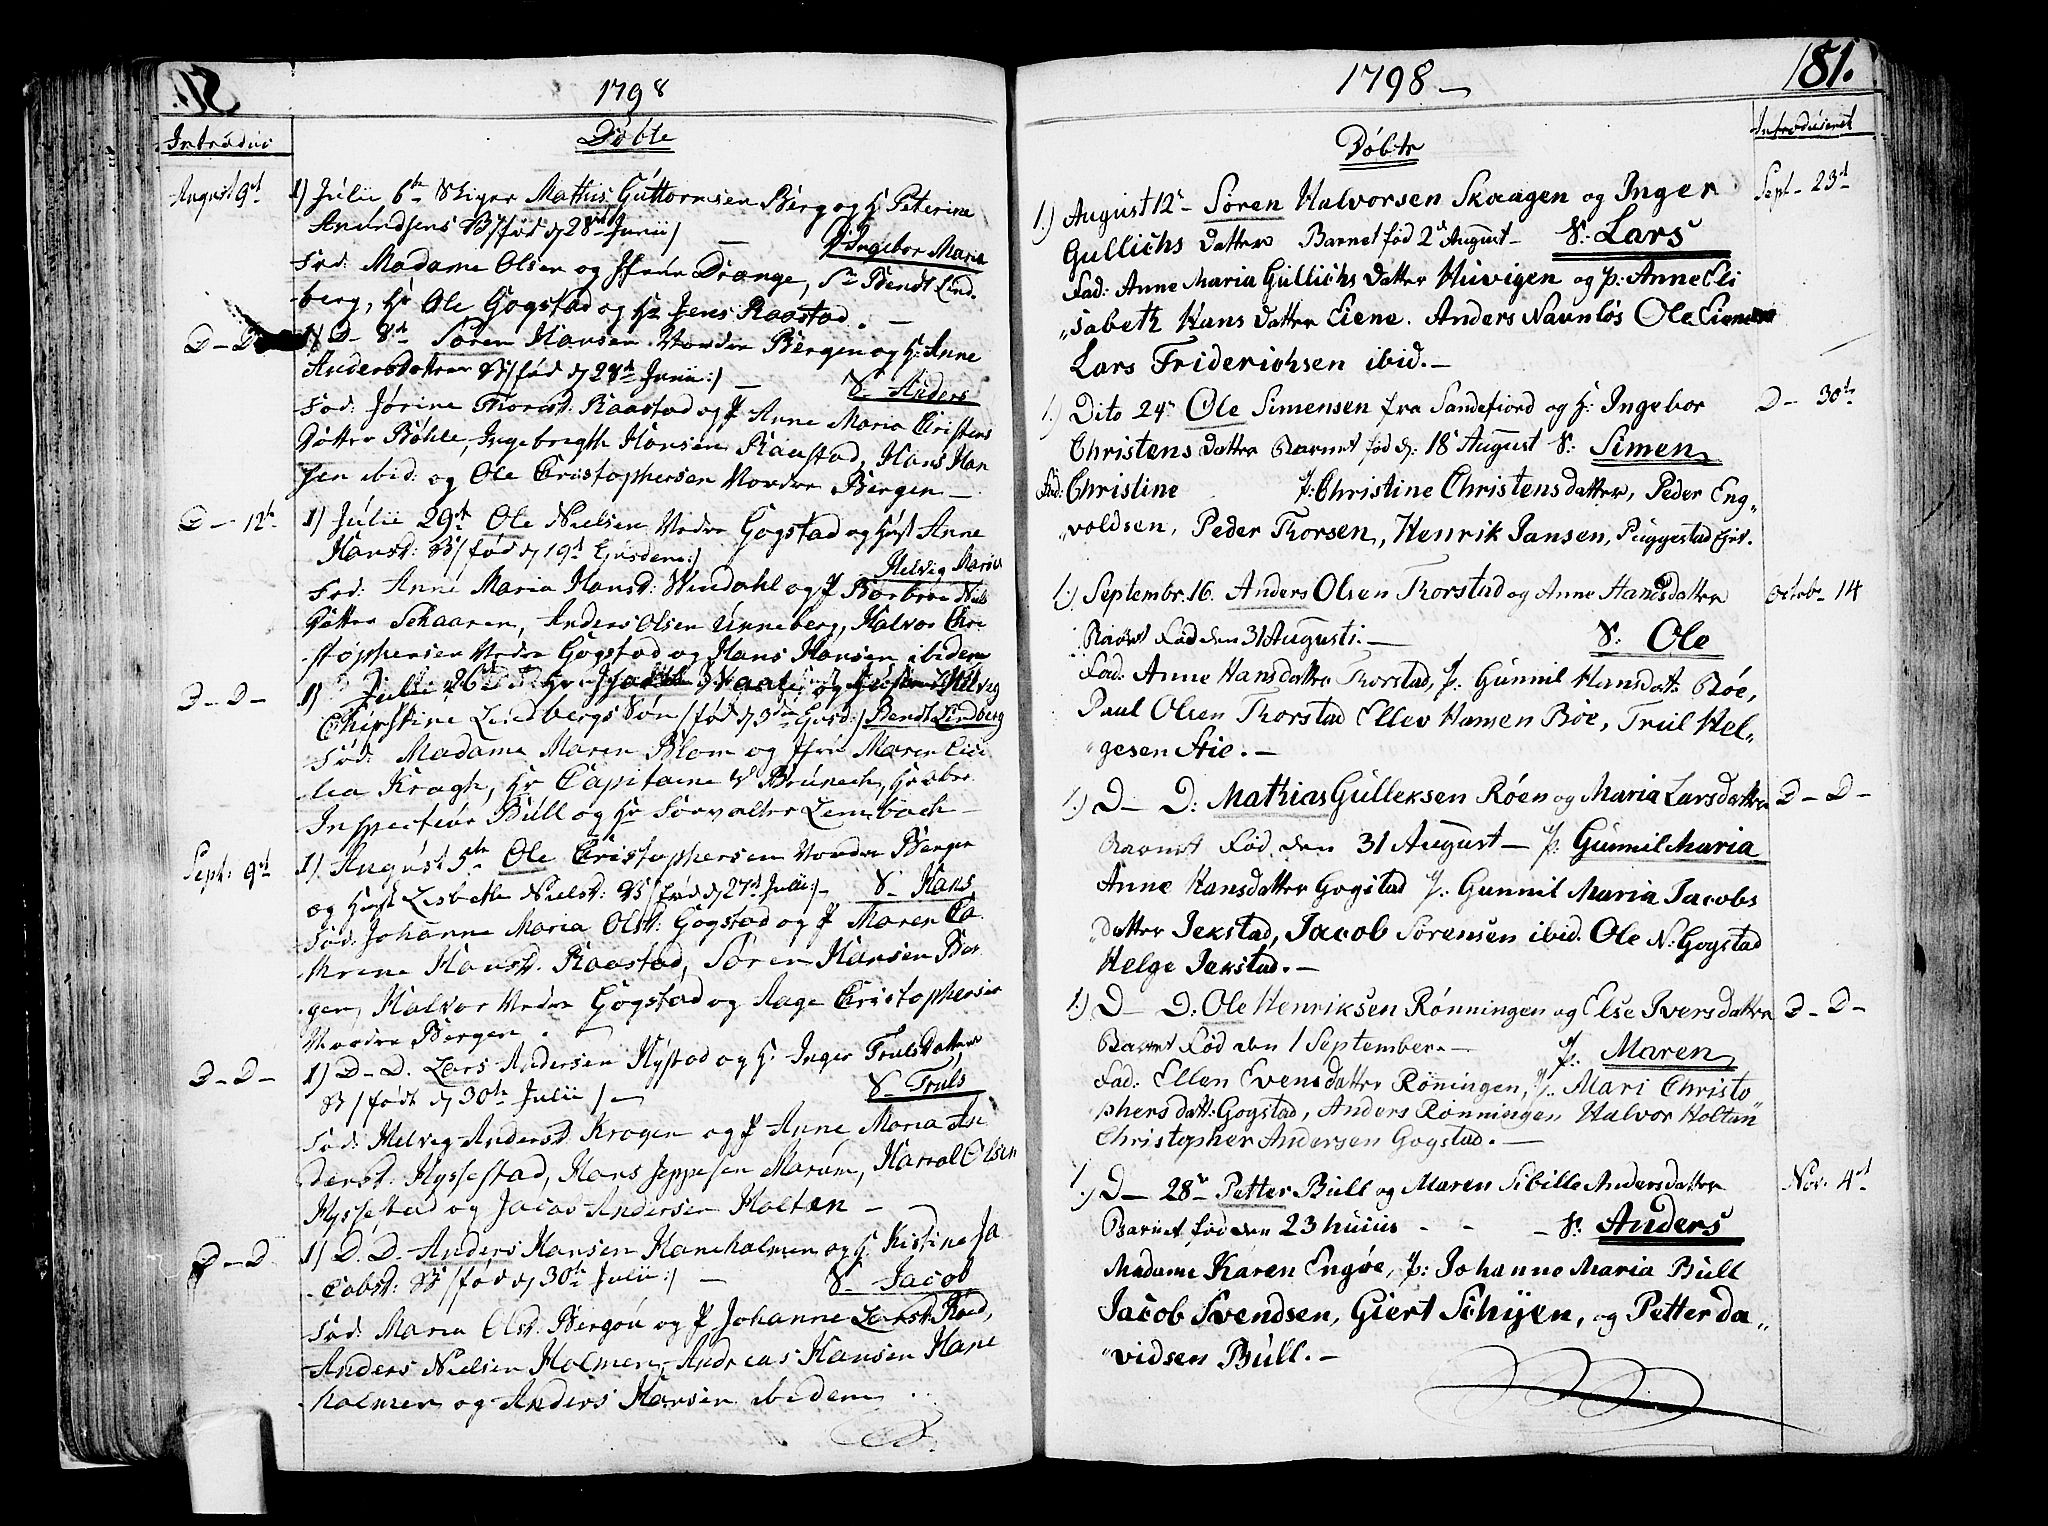 1798
Döbte
Introduc
August 9de
1) Julii 6te Skiper Mathis Guttormsen Berg og H. Peterine
Amundsens B/ fød d 28de Junii/ — P Ingebor Maria
Fad: Madame Olsen og Jfrue Drange, Sr Bendt Lind-
berg, Hr Ole Gogstad og Hr Jens Raastad. —
D — D
1) D — 8de Sören Hansen Nordre Bergen og H: Anne
Andersdatter B/ fød d 28de Junii:/ — S. Anders
Fad: Jörine Thorsd: Raastad og P Anne Maria Cristens
Datter Böhle, Ingebregth Hansen Raastad, Hans Han
sen ibid: og Ole Cristophersen Nordre Bergen —
D — 12te
1) Julii 29de Ole Nielsen Nedre Gogstad og Hust Anne
Hansd: B/ fød d 19de Ejusdem:/ Helvig Maria
Fad: Anne Maria Hansd: Windahl og P Barbroe Niels
Datter Schaaren, Anders Olsen Unneberg, Halvor Chri-
stophersen Nedre Gogstad og Hans Hansen ibidem
D — D —
1) Julii 26 Hr Vaale og Helvig
Christine Lindbergs Søn / fød d 3die :/ Bendt Lindberg
Fad: Madame Maren Blom og Jfrue Maren Ceci
lia Kragh, Hr Capitaine V Brunech, Hr
Inspecteur Bull og Hr Forvalter Lembach —
Sept: 9de
1) August 5te Ole Cristophersen Nordre Bergen
og Hust Lisbeth Nielsd: B/ fød d 27de Julii:/ — S. Hans
Fad: Johanne Maria Olsd: Gogstad og P Maren Ca
thrine Hansd. Raastad, Sören Hansen Ber
gen, Halvor Nedre Gogstad og Aage Cristophersen
Nordre Bergen. —
D — D —
1) D — D. Lars Andersen Hystad og H. Inger Trulsdatter
B / født d 30te Julii / — S. Truls
Fad: Helvig Andersd. Krogen og P Anne Maria An
dersd. Hyssestad, Hans Jeppesen Marum, Harral Olsen
Hyssestad og Jacob Andersen Holtan — —
D — D
1) D. D. Anders Hansen Haneholmen og H. Kistine Ja
cobsd: B / fød d 30te Julii:/ — S. Jacob
Fad: Maria Olsd. Bergan og P Johanne Larsd. Röed,
Anders Nielsen Holmen, Andreas Hansen Hane
holmen og Anders Hansen ibidem
1798 —
181.
Döbte
Introduseret
1.) August 12te Sören Halvorsen Skaagen og Inger
Gullichs Datter Barnet fød 2de August — S: Lars
Sept — 23de
Fad: Anne Maria Gullichs Datter Huvigen og p: Anne Eli
sabeth Hans Datter Eiene. Anders Navnlös Ole Eiene
Lars Friderichsen ibid. —
1.) Dito 24de Ole Simensen fra Sandefiord og H: Ingebor
D — 30te
Christens Datter Barnet fød d. 18de August S: Simen
Fad: Christine P: Christine Christensdatter, Peder Eng-
voldsen, Peder Thorsen, Henrik Jansen, Puggestad
1.) Septembr. 16. Anders Olsen Thorstad og Anne Hansdatter
Octob — 14
Barnet Fød den 31 Augusti. — S: Ole
Fad: Anne Hansdatter Thorstad, P: Gunnil Hansdatt: Böe,
Paul Olsen Thorstad Ellev Hansen Böe, Trul Hel-
gesen Stie. —
1.) D — D: Mathias Gulleksen Röen og Maria Larsdatter
D — D —
Barnet Fød den 31 August — P: Gunnil Maria
Anne Hansdatter Gogstad P: Gunnil Maria Jacobs
datter Jekstad, Jacob Sörensen ibid. Ole N: Gogstad
Helge Jekstad. —
1.) D — D: Ole Henriksen Rönningen og Else Iversdatter
D — D —
Barnet Fød den 1 September. — P: Maren
Fad: Ellen Evensdatter Röningen, P. Mari Christo
phersdatt: Gogstad, Anders Rönningen Halvor Holtan
Christopher Andersen Gogstad. —
1.) D — 28de Petter Bull og Maren Sibille Andersdatter
Nov: 4de
Barnet fød den 23 huius — S: Anders
Madame Karen Engöe, P: Johanne Maria Bull
Jacob Svendsen, Giert Schyen, og Petter Da
vidsen Bull. —